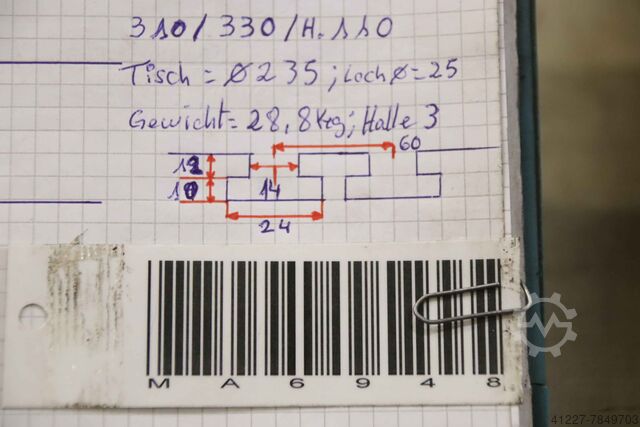 310/330/H.110
Tisch = Ø235; Loch Ø=25
Gewicht = 28,8Kg; Halle 3
60
12
14
10
24
MA6948
41227-7849703